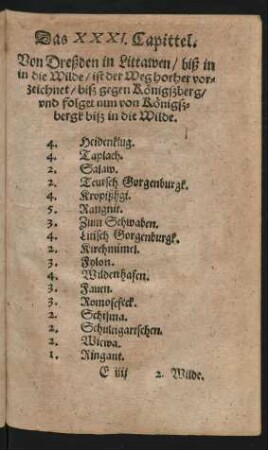 Das XXXI. Capittel.
Von Dreßden in Littawen / biß in
in die Wilde / ist der Weg vorher vor-
zeichnet / biß gegen Königißberg /
vnd folget nun von Königiß-
bergk biß in die Wilde.
4. Heidenkug.
4. Taplach.
2. Salaw.
2. Teutsch Gorgenburgk.
4.
5. Rangnit.
3. Zum Schwaben.
4. Litisch Gorgenburgk.
2. Kirchmümel.
3. Fylon.
4. Wildenhafen.
3. Fauen.
3. Romoseseck.
2. Schisma.
2. Schuingartschen.
2. Wiewa.
1. Ringant.
E iiij 2. Wilde.